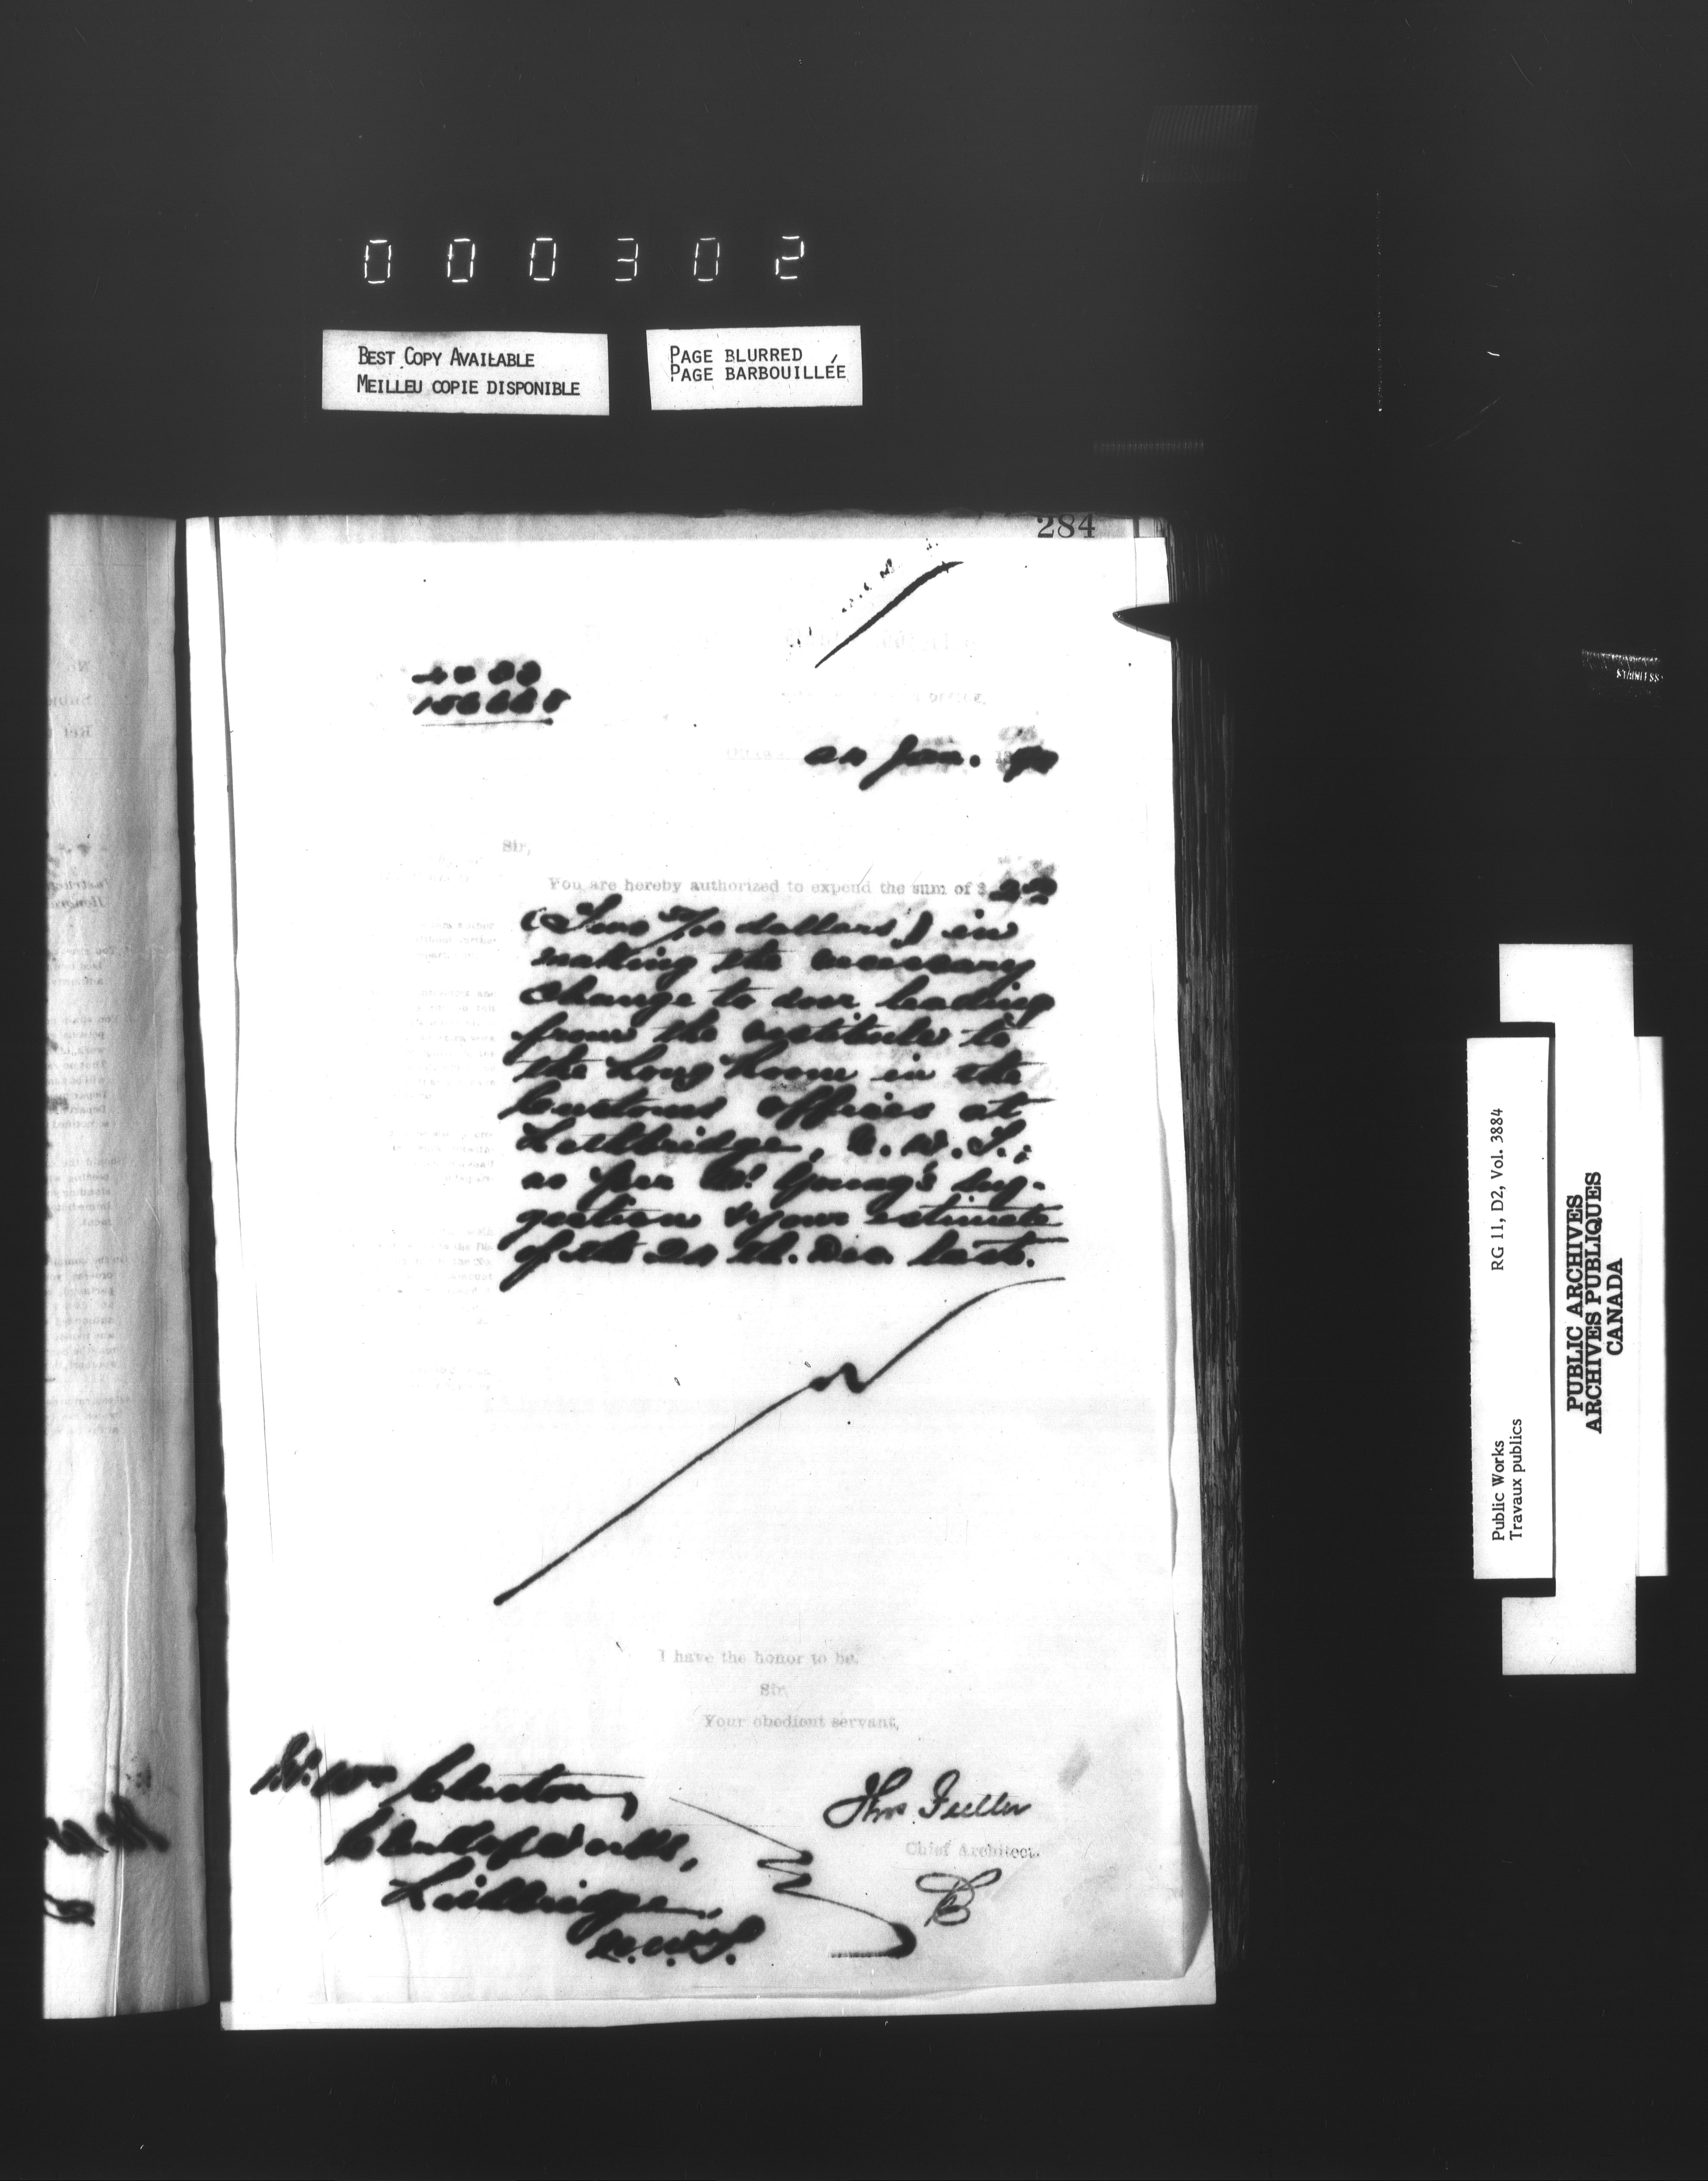 000302
BEST COPY AVAILABLE
MEILLEU COPIE DISPONIBLE
PAGE BLURRED
PAGE BARBOUILLÉE
284
Jan.
Sir,
You are hereby authorized to expend the sum of $
dollars) in
making the necessary
change to door leading
from the vestibule to
the Long Room in the
Customs offices at
Lethbridge, N.W.T.,
as per Mr Young's sug-
gestion & your estimate
of the th. Dec last.
I have the honor to be,
Sir,
Your obedient servant,
Thos Fuller
Chief Architect.
Clerk of Works,
Lethbridge,
N.W.T.
Public Works
Travaux publics
RG 11, D2, Vol. 3884
PUBLIC ARCHIVES
ARCHIVES PUBLIQUES
CANADA
STAINLESS